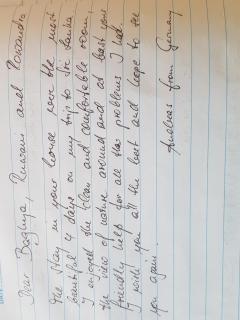 Dear Baghya, Ruwani and Ravindra
The stay in your house gave the most
beautiful 4 days on my trip to Sri Lanka.
I enjoyed the clean and comfortable room,
the view of nature around and at least your
friendly help for all the problems I had.
I wish you all the best and hope to see
you again.
Andreas from Germany